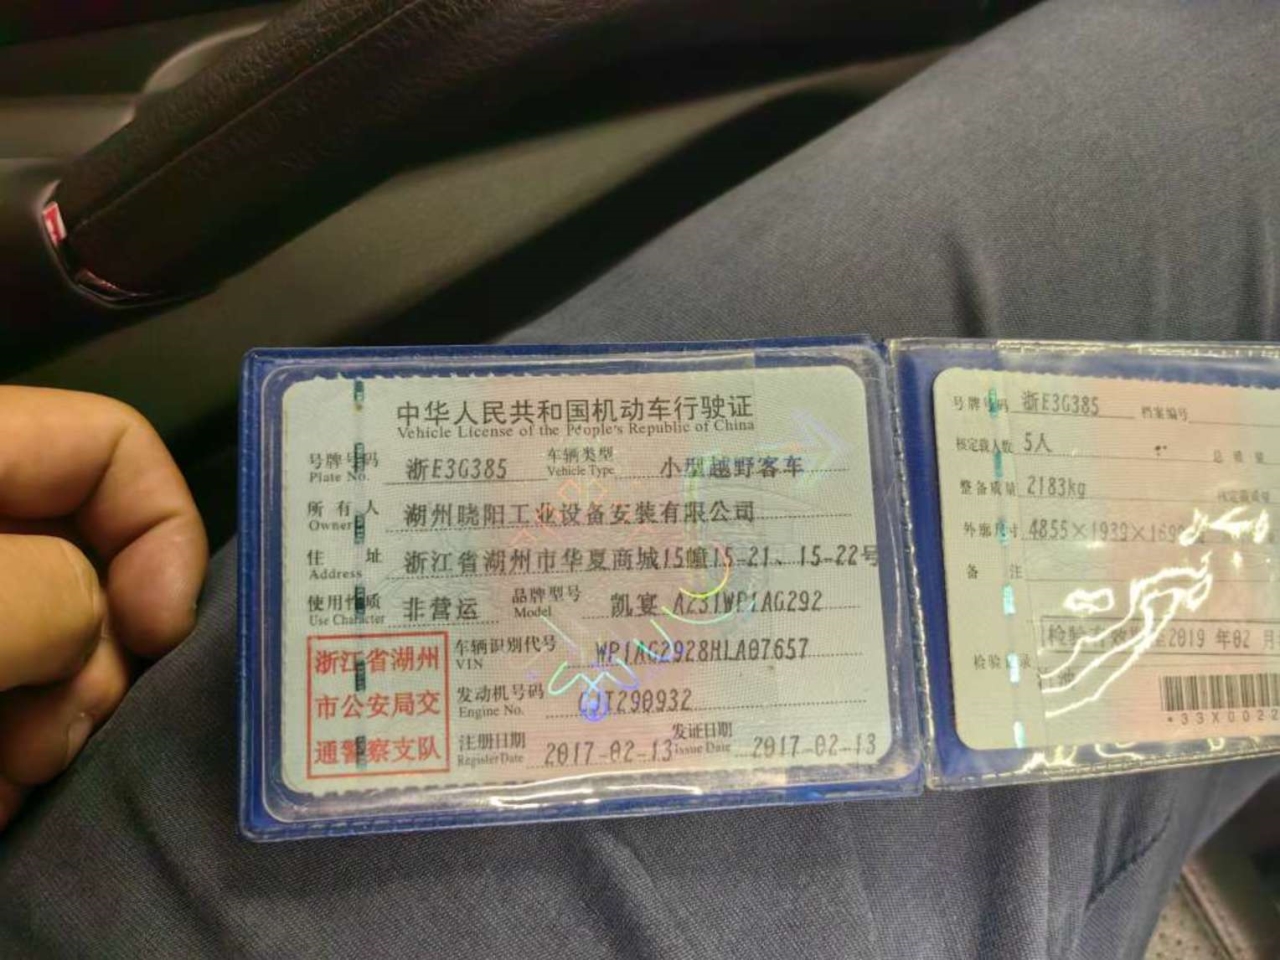 中华人民共和国机动车行驶证
Vehicle License of the People's Republic of China
号牌号码 浙E3G385 车辆类型 小型越野客车
Plate No. Vehicle Type
所有人 湖州晓阳工业设备安装有限公司
Owner
住址 浙江省湖州市华夏商城15幢15-21、15-22号
Address
使用性质 非营运 品牌型号 凯宴 AZ31WP1AG292
Use Character Model
浙江省湖州
市公安局交
通警察支队
车辆识别代号 WP1AG2928HLA07657
VIN
发动机号码 290932
Engine No.
注册日期 2017-02-13 发证日期 2017-02-13
Register Date Issue Date
号牌号码 浙E3G385 档案编号
核定载人数 5人 总质量
整备质量 2183kg 核定载质量
外廓尺寸 4855×1939×169
备注
检验有效期至2019年02月
检验记录
*33X0022